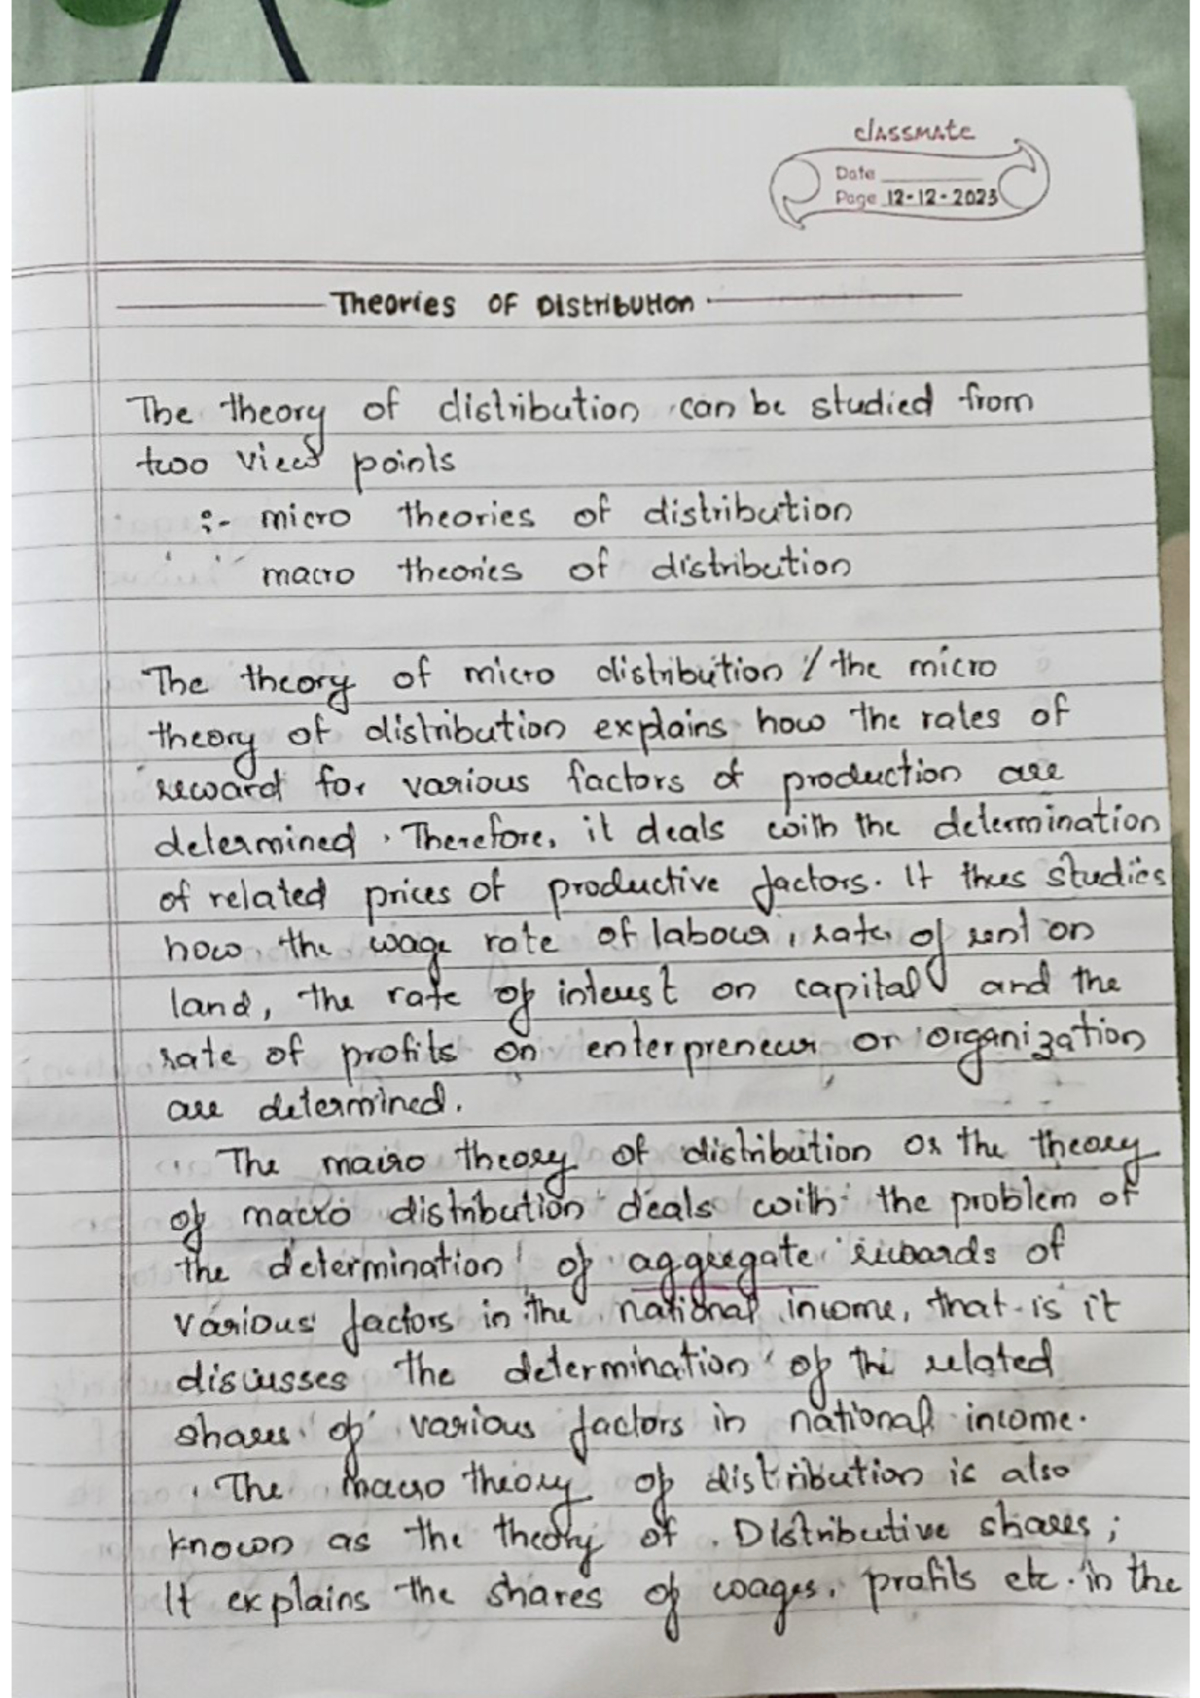 classmate
Date
Page 12-12-2023
Theories OF Distribution
The theory of distribution can be studied from
two view points
:- micro theories of distribution
macro theories of distribution
The theory of micro distribution / the micro
theory of distribution explains how the rates of
reward for various factors of production are
determined. Therefore, it deals with the determination
of related prices of productive factors. It thus studies
how the wage rate of labour, rate of rent on
land, the rate of interest on capital and the
rate of profits on enterpreneur or organization
are determined.
The macro theory of distribution or the theory
of macro distribution deals with the problem of
the determination of aggregate rewards of
various factors in the national income, that is it
discusses the determination of the related
shares of various factors in national income.
The macro theory of distribution is also
known as the theory of Distributive shares;
It explains the shares of wages, profits etc. in the